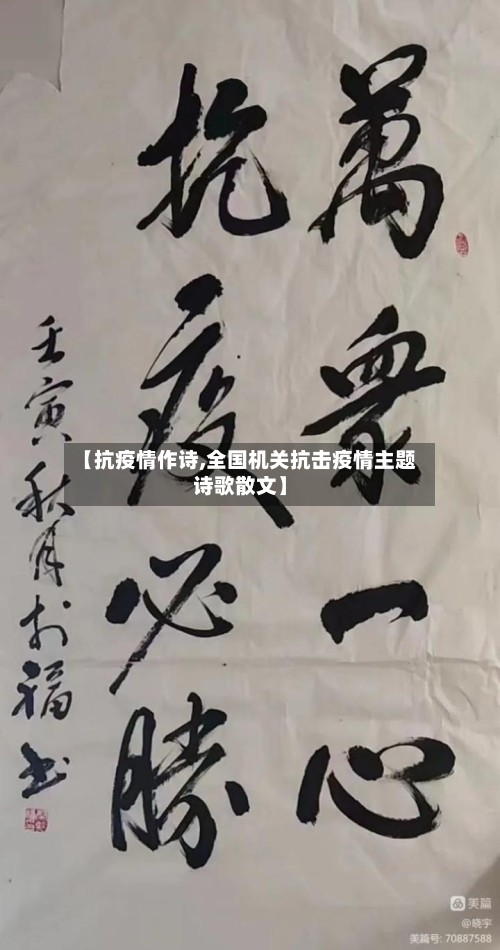 萬衆一心
抗疫必勝
壬寅秋月於福書
【抗疫情作诗,全国机关抗击疫情主题
诗歌散文】
美篇
@晓宇
美篇号: 70887588